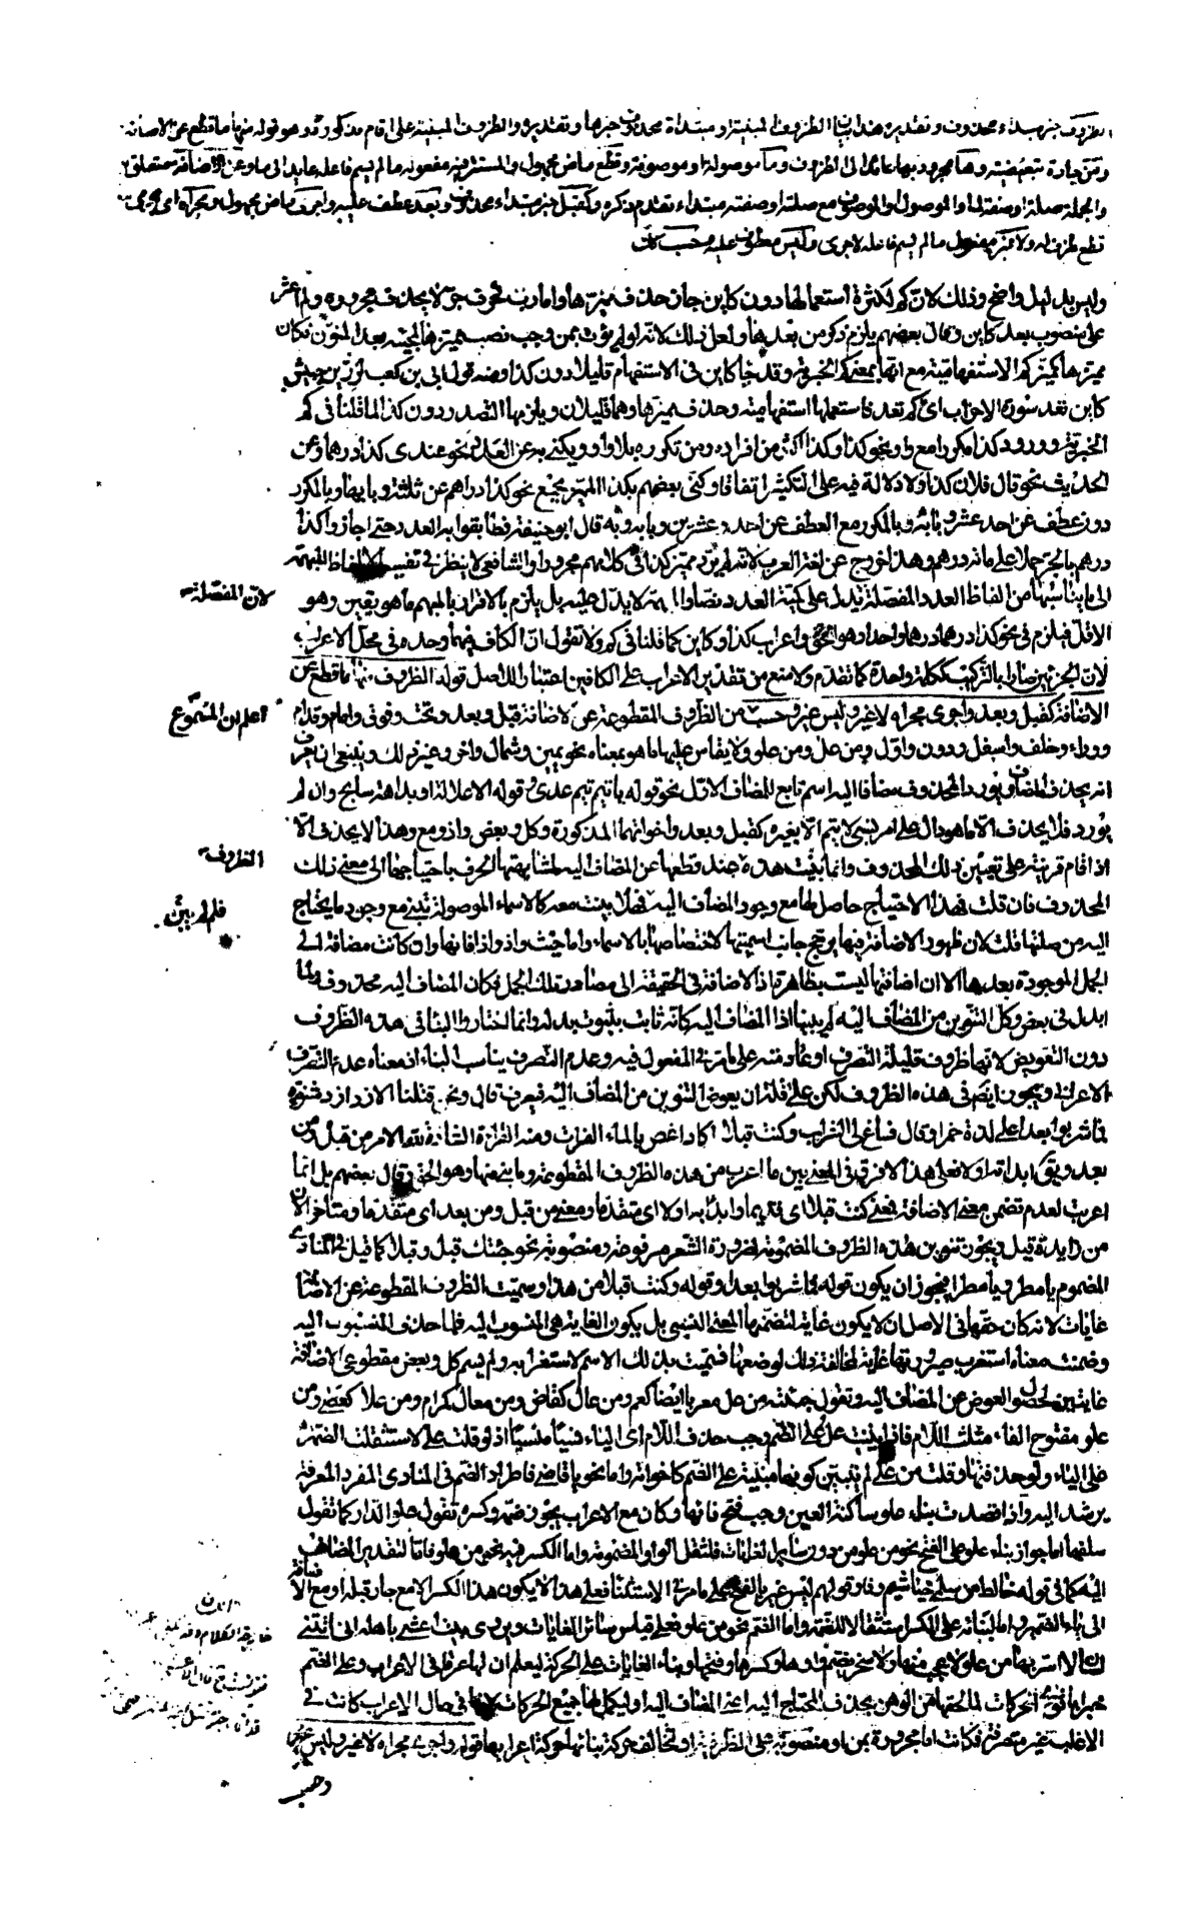 الظروف خبر مبتداء محذوف وتقديره هذا بيان الظروف المبنية او مبتداء محذوف خبرها وتقديره والظروف المبنية على اقسام مذكورة وهو قوله منها ما قطع عن الاضافة
ومن جارة تبعيضية وها مجرور بها عائد الى الظروف وما موصولة او موصوفة وقطع ماض مجهول والمستتر فيه مفعول ما لم يسم فاعله عايد الى ما وعن الاضافة متعلق
والجملة صلة او صفة لما والموصول او الموصوف مع صلته او صفته مبتداء تقدم ذكره وكقبل خبر مبتداء محذوف وبعد عطف عليه واجرى ماض مجهول ومجراه اى
قطع ظرف له ولا غير مفعول ما لم يسم فاعله لاجرى وليس معطوف عليه وحسب كذلك
وليس بدليل واضح وذلك لان كم لكثرة استعمالها دون كاين جاز حذف مميزها واما رب فحرف جر لا يحذف مجروره ولم اعثر
على منصوب بعد كاين وقال بعضهم يلزم ذكر من بعدها ولعل ذلك لانه لو لم يؤت بمن وجب نصب مميزها لمجيئه بعد المنون فكان
مميزها كمميز كم الاستفهامية مع انها بمعنى كم الخبرية وقد جا كاين فى الاستفهام قليلا دون كذا ومنه قول ابى بن كعب لزر بن حبيش
كاين تعد سورة الاحزاب اى كم تعد فاستعملها استفهامية وحذف مميزها وهما قليلان ويلزمها التصدر دون كذا لما قلنا فى كم
الخبرية وورود كذا مكررا مع واو نحو كذا وكذا اكثر من افراده ومن تكريره بلا واو ويكنى به عن العدد نحو عندى كذا درهما وعن
الحديث نحو قال فلان كذا ولا دلالة فيه على التكثير اتفاقا وكنى بعضهم بكذا المميز بجمع نحو كذا دراهم عن ثلثة وبابها وبالمكرر
دون عطف عن احد عشر وبابه وبالمكرر مع العطف عن احد وعشرين وبابه وبه قال ابو حنيفة فطابقوا به العدد حتى اجازوا كذا
درهم بالجر حملا على مائة درهم وهذا خروج عن لغة العرب لانه لم يرد مميز كذا فى كلامهم مجرورا والشافعى لا ينظر فى تفسير الالفاظ المبهمة
الى ما يناسبها من الفاظ العدد المفصلة تدل على كمية العدد نصا والمبهمة لا يدل عليه بل يلزم بالاقرار بالمبهم ما هو يقين وهو
لان المفصلة
الاقل فيلزم فى نحو كذا درهما درهما واحدا وهو الحق واعراب كذا وكاين كما قلنا فى كم ولا تقول ان الكاف فيهما وحده فى محل الاعراب
لان الجزئين صارا بالتركيب ككلمة واحدة كما تقدم ولا منع من تقدير الاعراب على الكاف اعتبارا للاصل قوله الظروف منها ما قطع عن
الاضافة كقبل وبعد واجرى مجراه لا غير وليس غير وحسب من الظروف المقطوعة عن الاضافة قبل وبعد وتحت وفوق وامام وقدام
اعلم ان المسموع
ووراء وخلف واسفل ودون واول ومن عل ومن علو ولا يقاس عليها ما هو بمعناه نحو يمين وشمال واخر وغير ذلك وينبغى ان يعرف
انه يحذف المضاف ويورد المحذوف مضافا اليه اسم تابع للمضاف الاول نحو قوله يا تيم تيم عدى وقوله الا علالة او بداهة سابح وان لم
يورد فلا يحذف الا ما هو دال على امر نسبى لا يتم الا بغيره كقبل وبعد واخواتهما المذكورة وكل وبعض واذ ومع وهذا لا يحذف الا
اذا قام قرينة على تعيين ذلك المحذوف وانما بنيت هذه عند قطعها عن المضاف اليه لمشابهتها الحرف باحتياجها الى معنى ذلك
الظروف
المحذوف فان قلت فهذا الاحتياج حاصل لها مع وجود المضاف اليه فهلا بنيت معه كالاسماء الموصولة تبنى مع وجود ما يحتاج
فلم لم يبين
اليه من صلتها قلت لان ظهور الاضافة فيها يرجح جانب اسميتها لاختصاصها بالاسماء واما حيث واذ واذا فانها وان كانت مضافة الى
الجمل الموجودة بعدها الا ان اضافتها ليست بظاهرة اذ الاضافة فى الحقيقة الى مصادر تلك الجمل فكان المضاف اليه محذوف ولما
ابدل فى بعض وكل التنوين من المضاف اليه لم يبنيا اذ المضاف اليه كانه ثابت بثبوت بدله وانما اختاروا البناء فى هذه الظروف
دون التعويض لانها ظروف قليلة التصرف او عادمته على ما مر فى المفعول فيه وعدم التصرف يناسب البناء اذ معناه عدم التصرف
الاعرابى ويجوز ايضا فى هذه الظروف لكن على قلة ان يعوض التنوين من المضاف اليه فيعرب قال ونحن قتلنا الازد ازد شنوة
فما شربوا بعدا على لذة خمرا وقال فساغ لى الشراب وكنت قبلا اكاد اغص بالماء الفرات ومنه القراءة الشاذة لله الامر من قبل ومن
بعد ويق ابدا به اولا فعلى هذا لا فرق فى المعنى بين ما اعرب من هذه الظروف المقطوعة وما بنى منها وهو الحق وقال بعضهم بل انما
اعرب لعدم تضمن معنى الاضافة فمعنى كنت قبلا اى قديما وابدا به اولا اى متقدما ومعنى من قبل ومن بعد اى متقدما ومتأخرا لان
من زايدة قيل ويجوز تنوين هذه الظروف المضمومة لضرورة الشعر مرفوعة ومنصوبة نحو جئتك قبل وقبلا كما قيل فى المنادى
المضموم يا مطر ويا مطرا فيجوز ان يكون قوله فما شربوا بعدا وقوله وكنت قبلا من هذا وسميت الظروف المقطوعة عن الاضافة
غايات لانه كان حقها فى الاصل ان لا يكون غاية لتضمنها المعنى النسبى بل يكون الغاية هى المنسوب اليه فلما حذف المنسوب اليه
وضمنت معناه استغرب صيرورتها غاية لمخالفة ذلك لوضعها فسميت بذلك الاسم لاستغرابه ولم يسم كل وبعض مقطوعى الاضافة
غايتين لحصول العوض عن المضاف اليه وتقول جئته من عل معربا ايضا كعم ومن عال كقاض ومن معال كمرام ومن علا كعصى ومن
علو مفتوح الفاء مثلث اللام فاذا بنيت عل على الضم وجب حذف اللام اى الياء نسيا منسيا اذ لو قلت على لاستثقلت الضمة
على الياء ولو حذفتها وقلت من عل لم يتبين كونها مبنية على الضم كاخواته واما نحو يا قاضى فاطراد الضم فى المنادى المفرد المعرفة
يرشد اليه واذا قصدت بناء علو ساكنة العين وجب فتح فائها وكان مع الاعراب يجوز ضمه وكسره تقول علو الدار كما تقول
سفلها اما جواز بناء علو على الفتح نحو من علو من دون سائر الغايات فلثقل الواو المضمومة واما الكسر فيه نحو من علو فاما لتقدير المضاف
اليه كما فى قوله خالط من سلمى خياشيم وفا وقولهم ليس غير بالفتح على ما مر فى الاستثنا فعلى هذا لا يكون هذا الكسر الا مع جار قبله او مع الاضافة
الى ياء الضمير واما البنائه على الكسر استثقالا للضمة واما الضم نحو من علو فعلى قياس سائر الغايات ويروى بيت اعشى باهلة انى اتتنى
لسان لا اسر بها من علو لا عجب منها ولا سخر بضم واوها وكسرها وفتحها وبناء الغايات على الحركة ليعلم ان لها عرقا فى الاعراب وعلى الضم
جبرا باقوى الحركات لما لحقها من الوهن بحذف المحتاج اليه اعنى المضاف اليه وليكمل لها جميع الحركات لانها فى حال الاعراب كانت فى
الاغلب غير متصرفة فكانت اما مجرورة بمن او منصوبة على الظرفية او تخالف حركة بنائها حركة اعرابها قوله واجرى مجراه لا غير وليس غير
وحسب